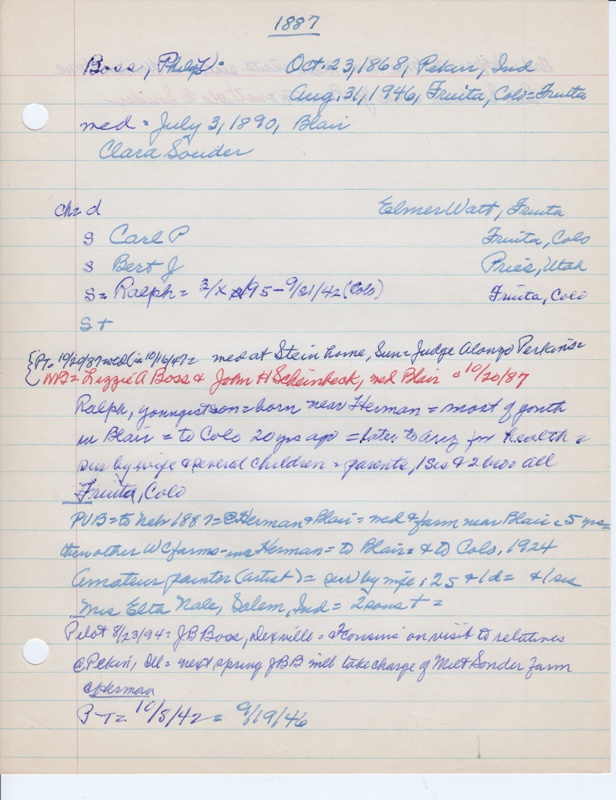 1887
Boss, Philip V = Oct. 23, 1868, Pekin, Ind
Aug. 31, 1946, Fruita, Colo = Fruita
med = July 3, 1890, Blair
Clara Souder
Ch = d Elmer Watt, Fruita
s Carl P Fruita, Colo
s Bert J Price, Utah
s = Ralph = 95 - 9/21/42 (Colo) Fruita, Colo
S +
PT = 10/20/87 = wed (in 10/16/47 = med at Stein home, Sun = Judge Alonzo Perkins =
NB = Lizzie A Boss & John H Scheinbeck, med Blair @ 10/20/87
Ralph, youngest son = born near Herman = most of youth
in Blair = to Colo 20 yrs ago = later to Ariz for health =
sur by wife & several children = parents, 1 sis & 2 bros all
Fruita, Colo
PVB = to Neb 1887 = @ Herman & Blair = med & farm near Blair @ 5 yrs =
then other WC farms = inc Herman = to Blair = & to Colo, 1924
Amateur painter (artist) = sur by wife, 2 s & 1 d = & 1 sis
Mrs Etta Nale, Salem, Ind = 2 sons + =
Pilot 8/23/94 = JB Boss, Dexville = & cousins on visit to relatives
@ Pekin, Ill = next spring JBB will take charge of Milt Souder farm
@ Herman
PT = 10/8/42 = 9/19/46